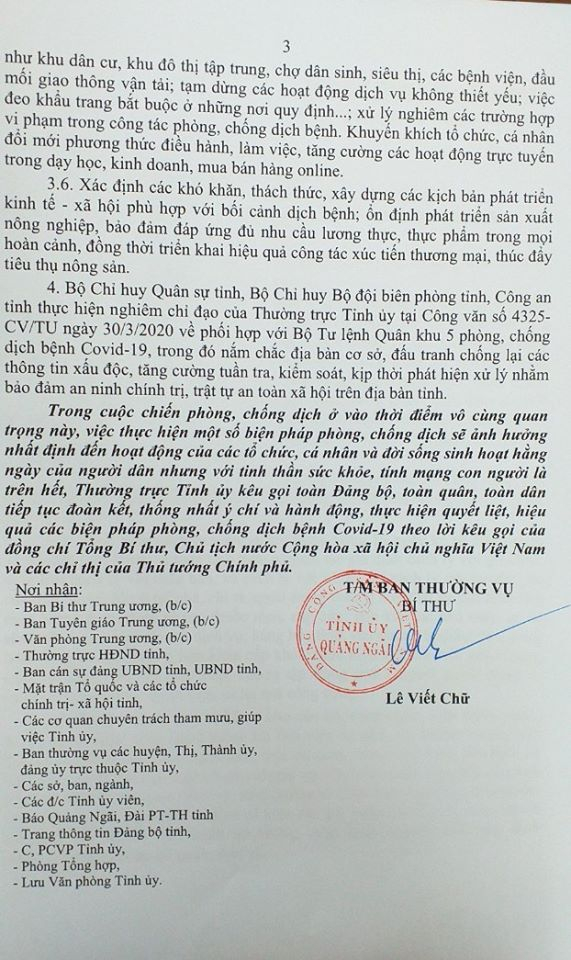 3
như khu dân cư, khu đô thị tập trung, chợ dân sinh, siêu thị, các bệnh viện, đầu
mối giao thông vận tải; tạm dừng các hoạt động dịch vụ không thiết yếu; việc
đeo khẩu trang bắt buộc ở những nơi quy định...; xử lý nghiêm các trường hợp
vi phạm trong công tác phòng, chống dịch bệnh. Khuyến khích tổ chức, cá nhân
đổi mới phương thức điều hành, làm việc, tăng cường các hoạt động trực tuyến
trong dạy học, kinh doanh, mua bán hàng online.
3.6. Xác định các khó khăn, thách thức, xây dựng các kịch bản phát triển
kinh tế - xã hội phù hợp với bối cảnh dịch bệnh; ổn định phát triển sản xuất
nông nghiệp, bảo đảm đáp ứng đủ nhu cầu lương thực, thực phẩm trong mọi
hoàn cảnh, đồng thời triển khai hiệu quả công tác xúc tiến thương mại, thúc đẩy
tiêu thụ nông sản.
4. Bộ Chỉ huy Quân sự tỉnh, Bộ Chỉ huy Bộ đội biên phòng tỉnh, Công an
tỉnh thực hiện nghiêm chỉ đạo của Thường trực Tỉnh ủy tại Công văn số 4325-
CV/TU ngày 30/3/2020 về phối hợp với Bộ Tư lệnh Quân khu 5 phòng, chống
dịch bệnh Covid-19, trong đó nắm chắc địa bàn cơ sở, đấu tranh chống lại các
thông tin xấu độc, tăng cường tuần tra, kiểm soát, kịp thời phát hiện xử lý nhằm
bảo đảm an ninh chính trị, trật tự an toàn xã hội trên địa bàn tỉnh.
Trong cuộc chiến phòng, chống dịch ở vào thời điểm vô cùng quan
trọng này, việc thực hiện một số biện pháp phòng, chống dịch sẽ ảnh hưởng
nhất định đến hoạt động của các tổ chức, cá nhân và đời sống sinh hoạt hằng
ngày của người dân nhưng với tinh thần sức khỏe, tính mạng con người là
trên hết, Thường trực Tỉnh ủy kêu gọi toàn Đảng bộ, toàn quân, toàn dân
tiếp tục đoàn kết, thống nhất ý chí và hành động, thực hiện quyết liệt, hiệu
quả các biện pháp phòng, chống dịch bệnh Covid-19 theo lời kêu gọi của
đồng chí Tổng Bí thư, Chủ tịch nước Cộng hòa xã hội chủ nghĩa Việt Nam
và các chỉ thị của Thủ tướng Chính phủ.
Nơi nhận:
- Ban Bí thư Trung ương, (b/c)
- Ban Tuyên giáo Trung ương, (b/c)
- Văn phòng Trung ương, (b/c)
- Thường trực HĐND tỉnh,
- Ban cán sự đảng UBND tỉnh, UBND tỉnh,
- Mặt trận Tổ quốc và các tổ chức
chính trị- xã hội tỉnh,
- Các cơ quan chuyên trách tham mưu, giúp
việc Tỉnh ủy,
- Ban thường vụ các huyện, Thị, Thành ủy,
đảng ủy trực thuộc Tỉnh ủy,
- Các sở, ban, ngành,
- Các đ/c Tỉnh ủy viên,
- Báo Quảng Ngãi, Đài PT-TH tỉnh
- Trang thông tin Đảng bộ tỉnh,
- C, PCVP Tỉnh ủy,
- Phòng Tổng hợp,
- Lưu Văn phòng Tỉnh ủy.
T/M BAN THƯỜNG VỤ
BÍ THƯ
ĐẢNG CỘNG SẢN VIỆT NAM
TỈNH ỦY
QUẢNG NGÃI
Lê Viết Chữ